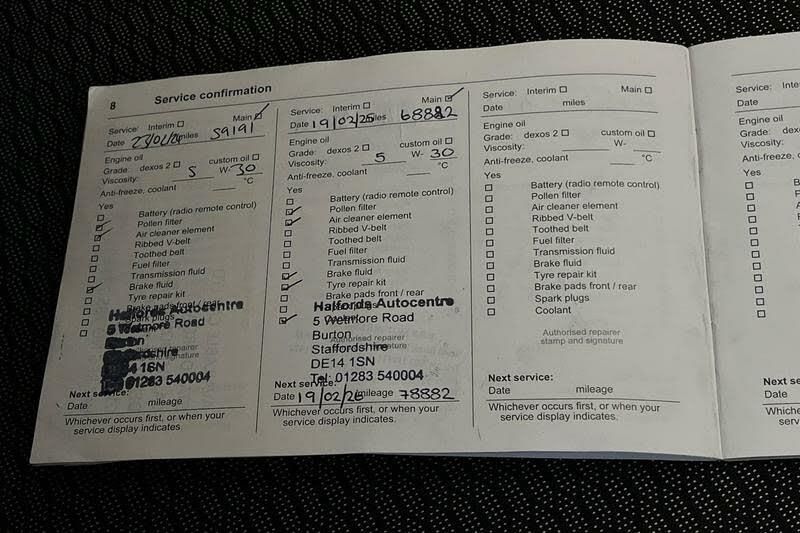 8 Service confirmation
Service: Interim Main
Date 23/02/24 miles 59191
Engine oil
Grade: dexos 2 custom oil
Viscosity: 5 W- 30
Anti-freeze, coolant °C
Yes
Battery (radio remote control)
Pollen filter
Air cleaner element
Ribbed V-belt
Toothed belt
Fuel filter
Transmission fluid
Brake fluid
Tyre repair kit
Brake pads front / rear
Halfords Autocentre
Spark plugs
5 Wetmore Road
Authorised repairer
stamp and signature
01283 540004
Next service:
Date mileage
Whichever occurs first, or when your
service display indicates.
Service: Interim Main
Date 19/02/25 miles 68882
Engine oil
Grade: dexos 2 custom oil
Viscosity: 5 W- 30
Anti-freeze, coolant °C
Yes
Battery (radio remote control)
Pollen filter
Air cleaner element
Ribbed V-belt
Toothed belt
Fuel filter
Transmission fluid
Brake fluid
Tyre repair kit
Brake pads front / rear
Halfords Autocentre
5 Wetmore Road
Burton
Authorised repairer
stamp and signature
Staffordshire
DE14 1SN
Tel: 01283 540004
Next service:
Date 19/02/26 mileage 78882
Whichever occurs first, or when your
service display indicates.
Service: Interim Main
Date miles
Engine oil
Grade: dexos 2 custom oil
Viscosity: W-
Anti-freeze, coolant °C
Yes
Battery (radio remote control)
Pollen filter
Air cleaner element
Ribbed V-belt
Toothed belt
Fuel filter
Transmission fluid
Brake fluid
Tyre repair kit
Brake pads front / rear
Spark plugs
Coolant
Authorised repairer
stamp and signature
Next service:
Date mileage
Whichever occurs first, or when your
service display indicates.
Service: Inte
Date
Engine oil
Grade: dexo
Viscosity:
Anti-freeze, c
Yes
Next se
Date
Whichev
serv